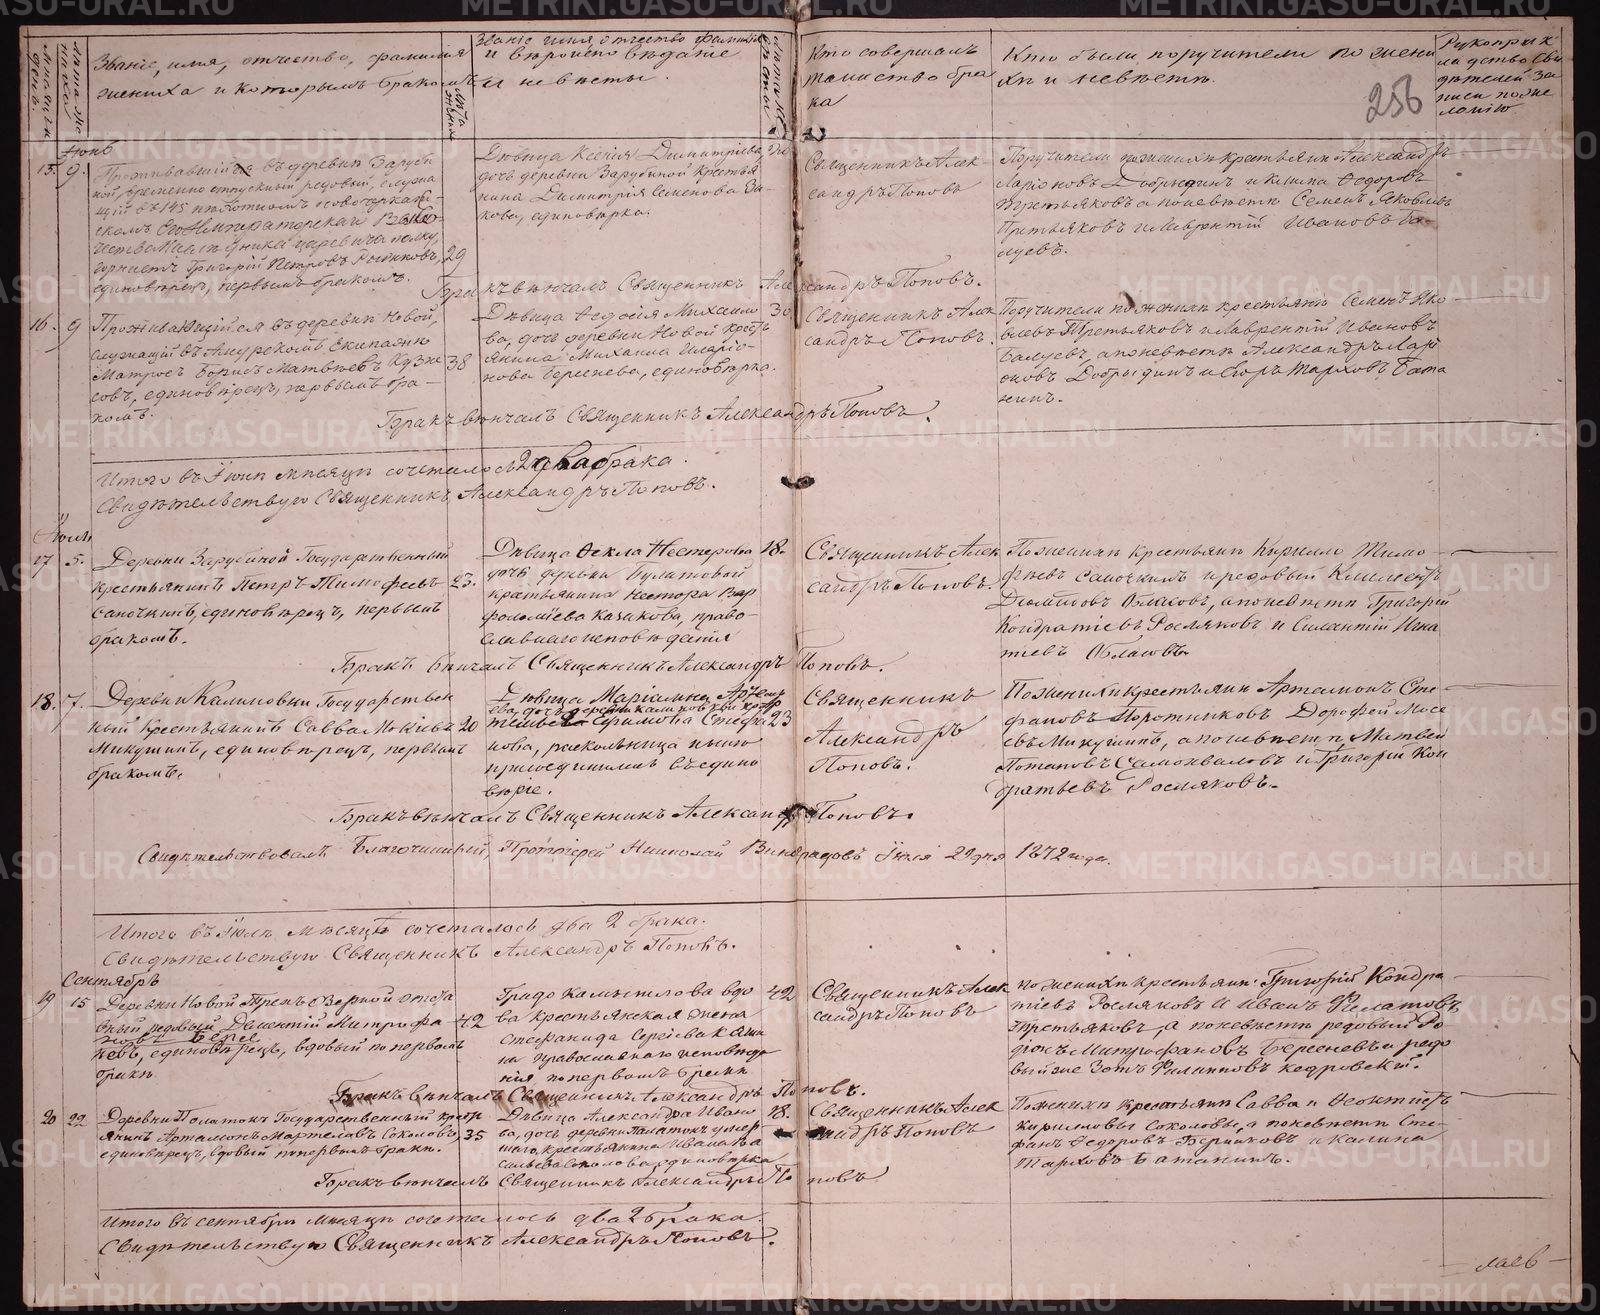 Званіе, имя, отчество, фамилія
жениха и которымъ бракомъ
Лѣта жениха
Званіе имя, отчество фамилія
и вѣроисповѣданіе
невѣсты.
Кто совершалъ
таинство бра
ка
Кто были поручители по жени
хѣ и невѣстѣ.
256
Рукоприк
ладство сви
дѣтелей за
писи по же
ланію.
Іюнь
15. 9.
Проживавшій въ деревнѣ Заруби
ной, временно отпускный рядовый, служа
щій въ 145 пѣхотномъ Новочеркас
скомъ Его Императорскаго Высо
чества Наслѣдника Цесаревича полку,
горнистъ Григорій Петровъ
единовѣрецъ, первымъ бракомъ.
29
Дѣвица Ксенія Димитріева,
дочь деревни Зарубиной крестья
нина Димитрія Семенова
единовѣрка.
Священникъ Алек
сандръ Поповъ
Поручители по женихѣ крестьянинъ Александръ
Ларіоновъ Добрыдинъ и Ѳедоровъ
Третьяковъ а по невѣстѣ Семенъ Яковлевъ
Третьяковъ и Лаврентій Ивановъ Ба
луевъ.
Бракъ вѣнчалъ Священникъ Александръ Поповъ.
16. 9
Проживающійся въ деревнѣ Новой,
служащій въ Амурскомъ Екипажѣ
Матросъ Борисъ Матвѣевъ Кузне
совъ, единовѣрецъ, первымъ бра-
комъ.
38
Дѣвица Ѳедосія Михаило
ва, дочь деревни Новой кресть
янина Михаила Иларіо-
нова Берсенева, единовѣрка.
30
Священникъ Алек
сандръ Поповъ.
Поручители по женихѣ крестьяне Семенъ Яко-
влевъ Третьяковъ и Лаврентій Ивановъ
Балуевъ, а по невѣстѣ Александръ Ларі
оновъ Добрыдинъ и Егоръ Тарховъ Бата
нинъ.
Бракъ вѣнчалъ Священникъ Александръ Поповъ.
Итого въ Іюнѣ мѣсяцѣ сочеталось 2 два брака.
Свидѣтельствую Священникъ Александръ Поповъ.
Іюль
17 5.
Деревни Зарубиной Государственный
крестьянинъ Петръ Тимофеевъ
Сапочкинъ, единовѣрецъ, первымъ
бракомъ.
23.
Дѣвица Ѳекла Нестерова
дочь деревни Булатовой
крестьянина Нестора Вар
фоломіева Казакова, право-
славнаго исповѣданія
18.
Священникъ Алек
сандръ Поповъ.
По женихѣ крестьянинъ Кирилло Тимо-
феевъ Сапочкинъ и рядовый Климентъ
Обласовъ, а по невѣстѣ Григорій
Кондратіевъ Росляковъ и Силантій Игна
тіевъ Обласовъ
Бракъ вѣнчалъ Священникъ Александръ Поповъ.
18. 7.
Деревни Калиновки Государствен
ный Крестьянинъ Савва
Микушинъ, единовѣрецъ, первымъ
бракомъ.
20
Дѣвица Маріамна Артемь
ева, дочь деревни Калиновки кресть
Стефа
нова, раскольница нынѣ
присоединилась въ едино
вѣріе.
23
Священникъ
Александръ
Поповъ.
По женихѣ крестьянинъ Артамонъ Сте
фановъ Коротниковъ Дорофей Мосе
евъ Микушинъ, а по невѣстѣ Матвей
Потаповъ Самохваловъ и Григорій Кон
дратьевъ Росляковъ.
Бракъ вѣнчалъ Священникъ Александръ Поповъ.
Свидѣтельствовалъ Благочинный, Протоіерей Николай Виноградовъ Іюля 29 дня 1872 года.
Итого въ Іюлѣ мѣсяцѣ сочеталось два 2 брака.
Свидѣтельствую Священникъ Александръ Поповъ.
Сентябрь
19 15
Деревни Новой Трехъ Озерной отста
вный рядовый Дементій Митрофа
новъ Берсе
невъ, единовѣрецъ, вдовый по первомъ
бракѣ.
42
Града Камышлова вдо
ва крестьянская жена
Стефанида Сергѣева Каши
на православнаго исповѣда
нія, по первомъ бракѣ
42
Священникъ Алек
сандръ Поповъ
По женихѣ крестьяне: Григорій Кондра
тіевъ Росляковъ и Иванъ Филатовъ
Третьяковъ, а по невѣстѣ рядовый Ро
діонъ Митрофановъ Берсеневъ и рядо
вый же Зотъ Филипповъ Кедровскій.
Бракъ вѣнчалъ Священникъ Александръ Поповъ.
20 22
Деревни Полатокъ Государственный кресть
янинъ Артамонъ Соколовъ,
единовѣрецъ, вдовый по первомъ бракѣ.
35
Дѣвица Александра Ивано
ва, дочь деревни Полатокъ умер
шаго крестьянина Ивана Ва
сильева Соколова единовѣрка
18.
Священникъ Алек
сандръ Поповъ
По женихѣ крестьяне Савва и Ѳеоктистъ
Кириловы Соколовы, а по невѣстѣ Сте-
фанъ Ѳедоровъ Берниковъ и Калина
Тарховъ Батанинъ.
Бракъ вѣнчалъ Священникъ Александръ Поповъ
Итого въ сентябрѣ мѣсяцѣ сочеталось два 2 брака.
Свидѣтельствую Священникъ Александръ Поповъ.